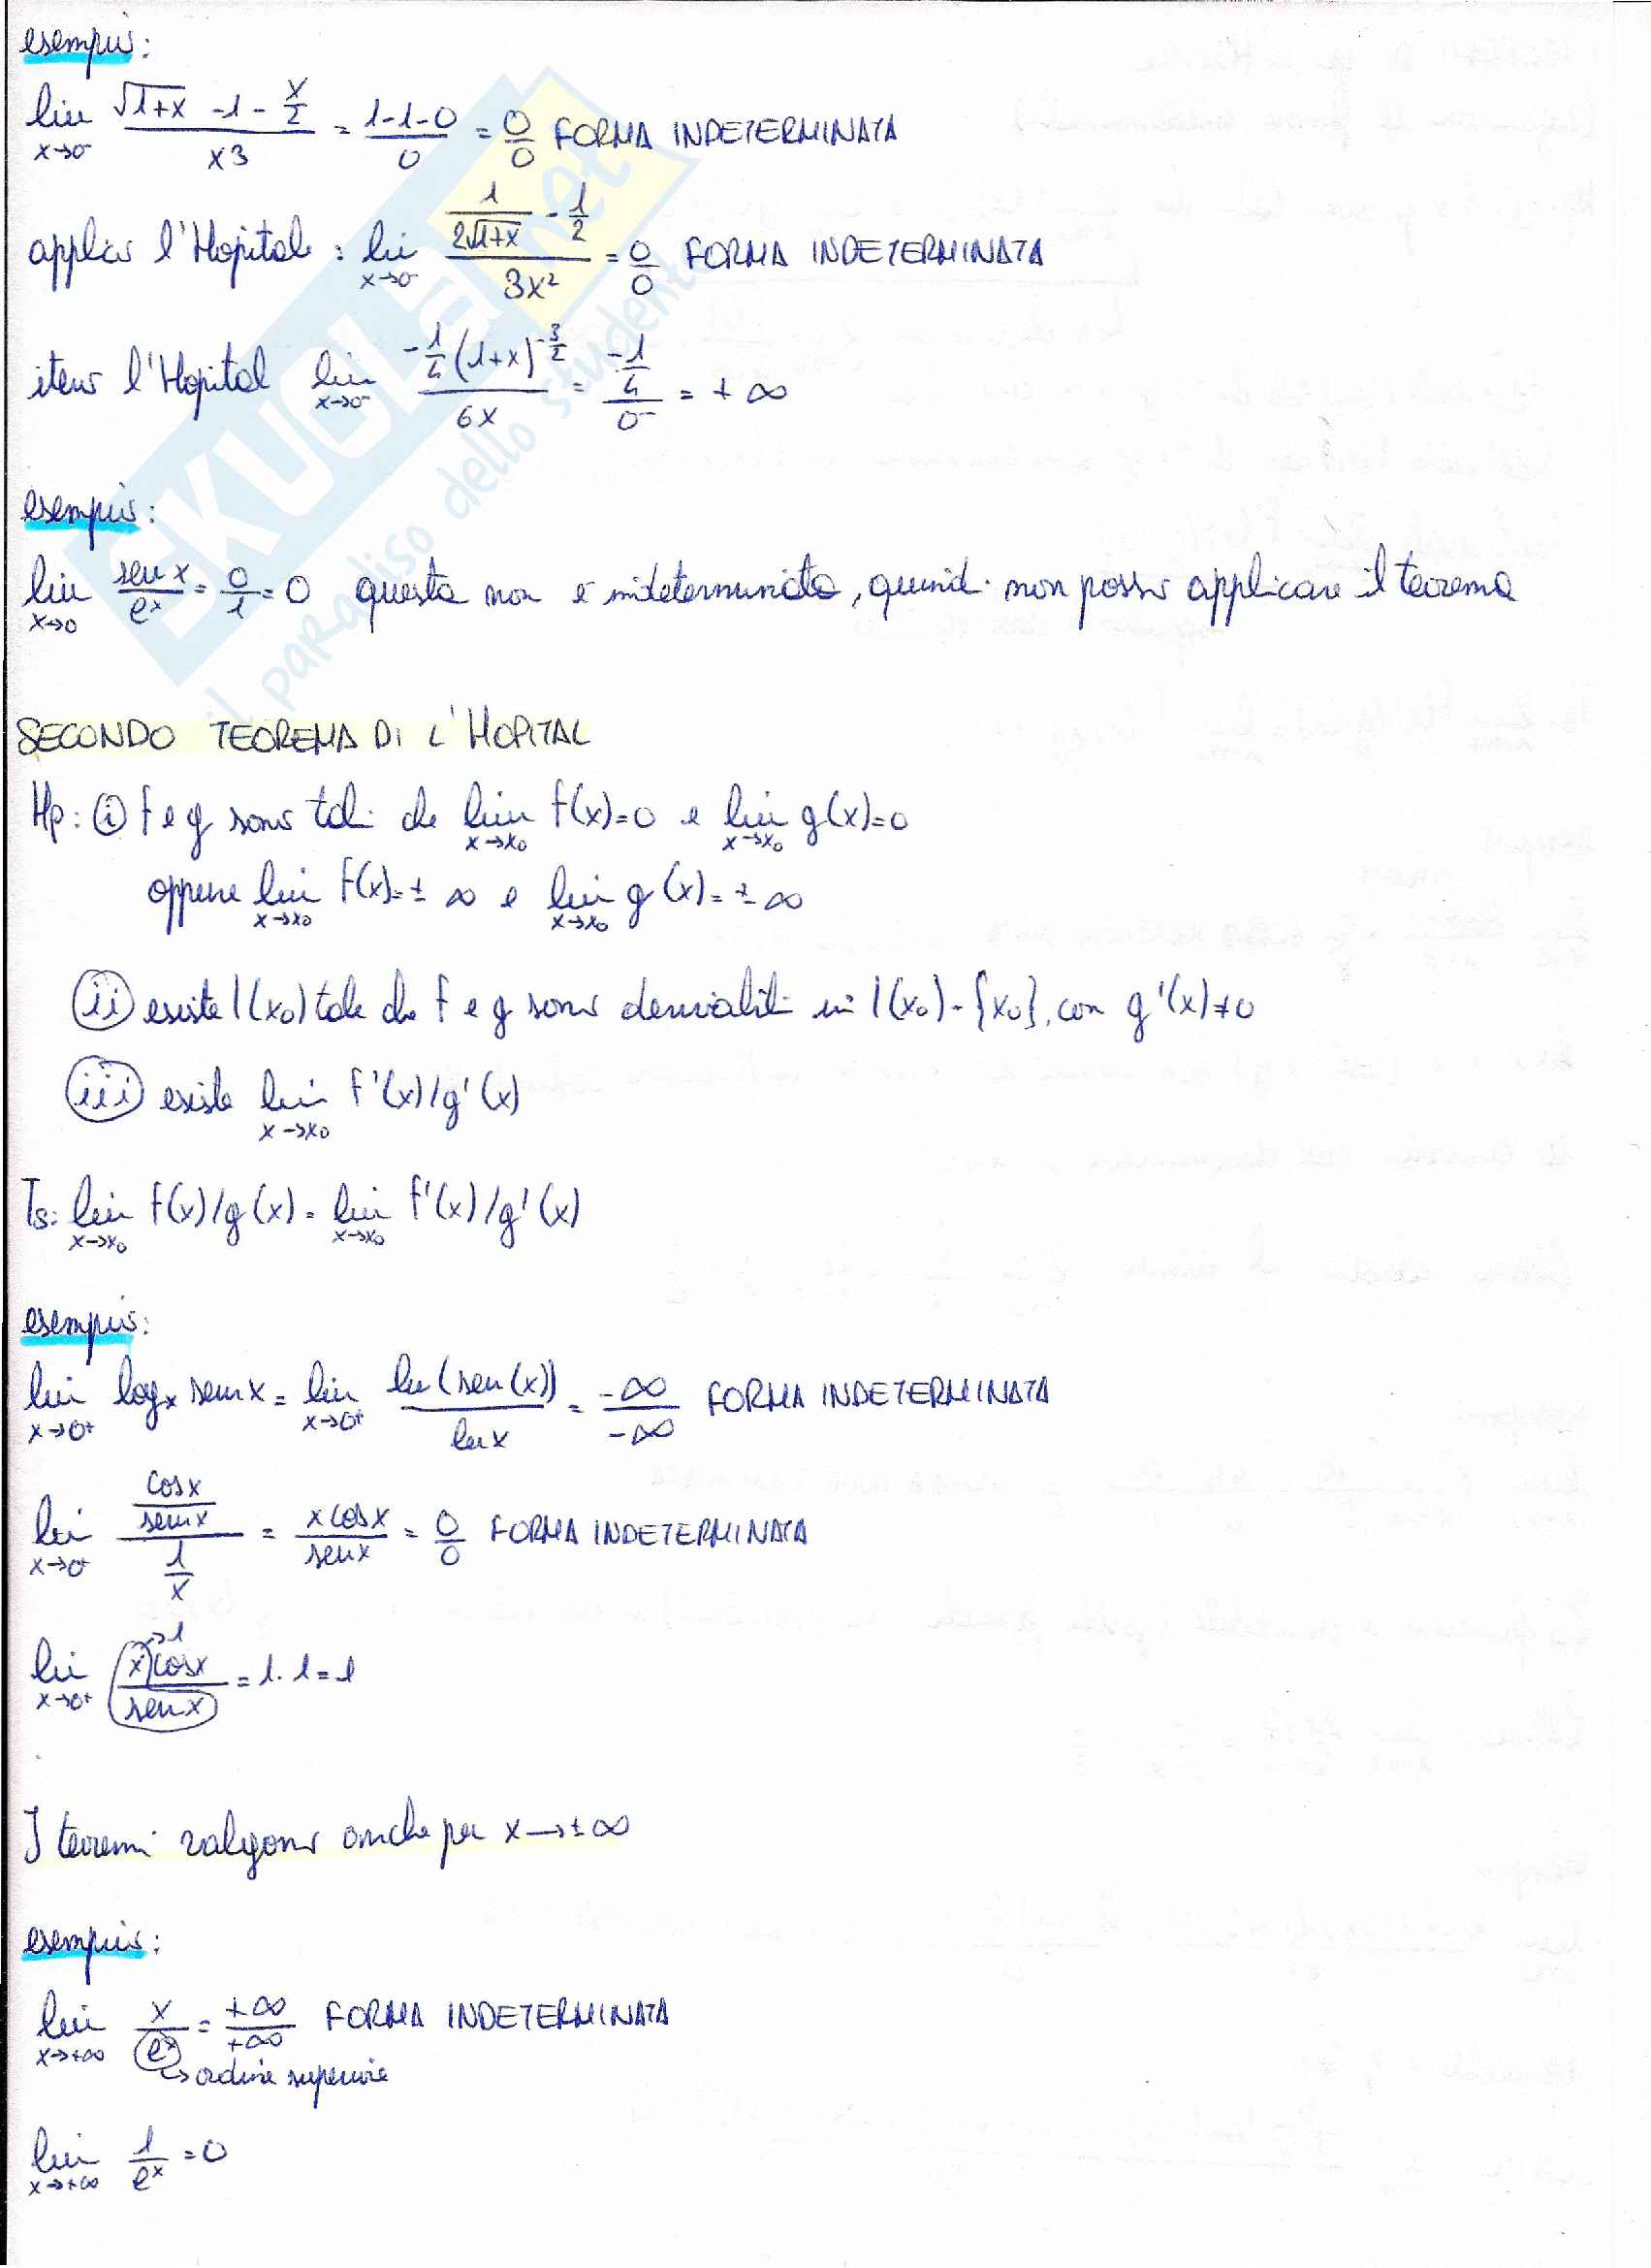 esempio:
lim x→0⁻ (√(1+x) -1 - x/2)/x3 = (1-1-0)/0 = 0/0 FORMA INDETERMINATA
applico l'Hopital: lim x→0⁻ (1/(2√(1+x)) - 1/2)/3x² = 0/0 FORMA INDETERMINATA
itero l'Hopital lim x→0⁻ (-1/4 (1+x)^(-3/2))/6x = (-1/4)/0⁻ = +∞
esempio:
lim x→0 sen x/eˣ = 0/1 = 0 questa non è indeterminata, quindi non posso applicare il teorema
SECONDO TEOREMA DI L'HOPITAL
Hp: (i) f e g sono tali che lim x→x₀ f(x)=0 e lim x→x₀ g(x)=0
oppure lim x→x₀ f(x)=±∞ e lim x→x₀ g(x)=±∞
(ii) esiste I(x₀) tale che f e g sono derivabili in I(x₀)-{x₀}, con g'(x)≠0
(iii) esiste lim x→x₀ f'(x)/g'(x)
Ts: lim x→x₀ f(x)/g(x) = lim x→x₀ f'(x)/g'(x)
esempio:
lim x→0⁺ logₓ sen x = lim x→0⁺ ln(sen(x))/ln x = -∞/-∞ FORMA INDETERMINATA
lim x→0⁺ (cos x/sen x)/(1/x) = x cos x/sen x = 0/0 FORMA INDETERMINATA
lim x→0⁺ x cos x/sen x = 1·1=1
→1
I teoremi valgono anche per x→±∞
esempio:
lim x→+∞ x/eˣ = +∞/+∞ FORMA INDETERMINATA
↳ ordine superiore
lim x→+∞ 1/eˣ = 0
SKUOLA.net
il paradiso dello studente